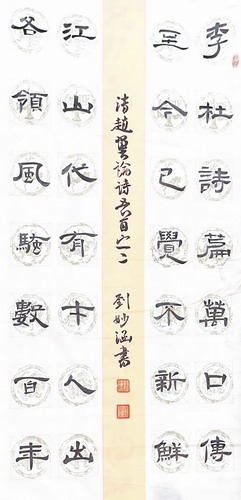 李杜詩篇萬口傳
至今已覺不新鮮
江山代有才人出
各領風騷數百年
清趙翼論詩五首之二 劉妙涵書